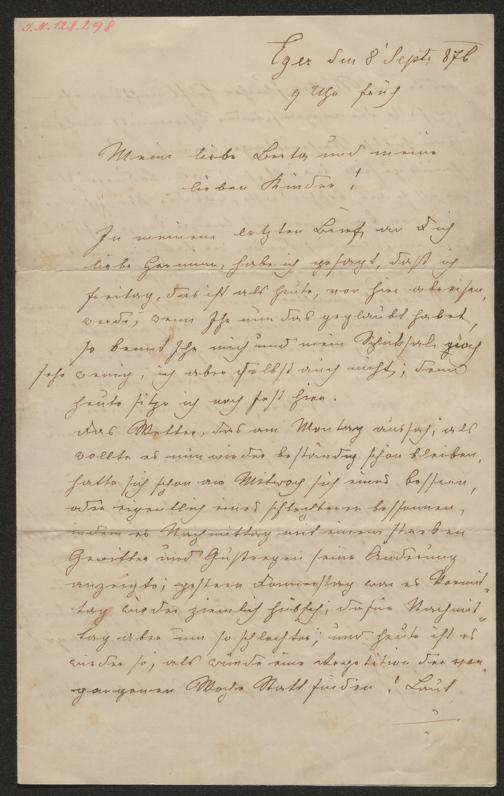 I.N. 128.298
Eger den 8' Septr 876
9 Uhr früh
Meine liebe Berta und meine
lieben Kinder!
In meinem letzten Brief an Dich
liebe Hermine, habe ich gesagt, daß ich
Freitag, das ist als heute, von hier abreisen
werde; wenn Ihr nun das geglaubt habet,
so kennt Ihr mich und mein Schicksal noch
sehr wenig, ich aber selbst auch nicht; denn
heute sitze ich noch fest hier.
Das Wetter, das am Montag aussah, als
wollte es nun wieder beständig schön bleiben,
hatte sich schon am Mittwoch sich eines bessern,
oder eigentlich eines schlechteren besonnen,
indem es Nachmittag mit einem starken
Gewitter und Gußregen seine Änderung
anzeigte; gestern Donnerstag war es Vormit-
tag wieder ziemlich hübsch, dafür Nachmit-
tag aber um so schlechter, und heute ist es
wieder so, als würde eine Repetition der ver-
gangenen Woche Statt finden! Laut